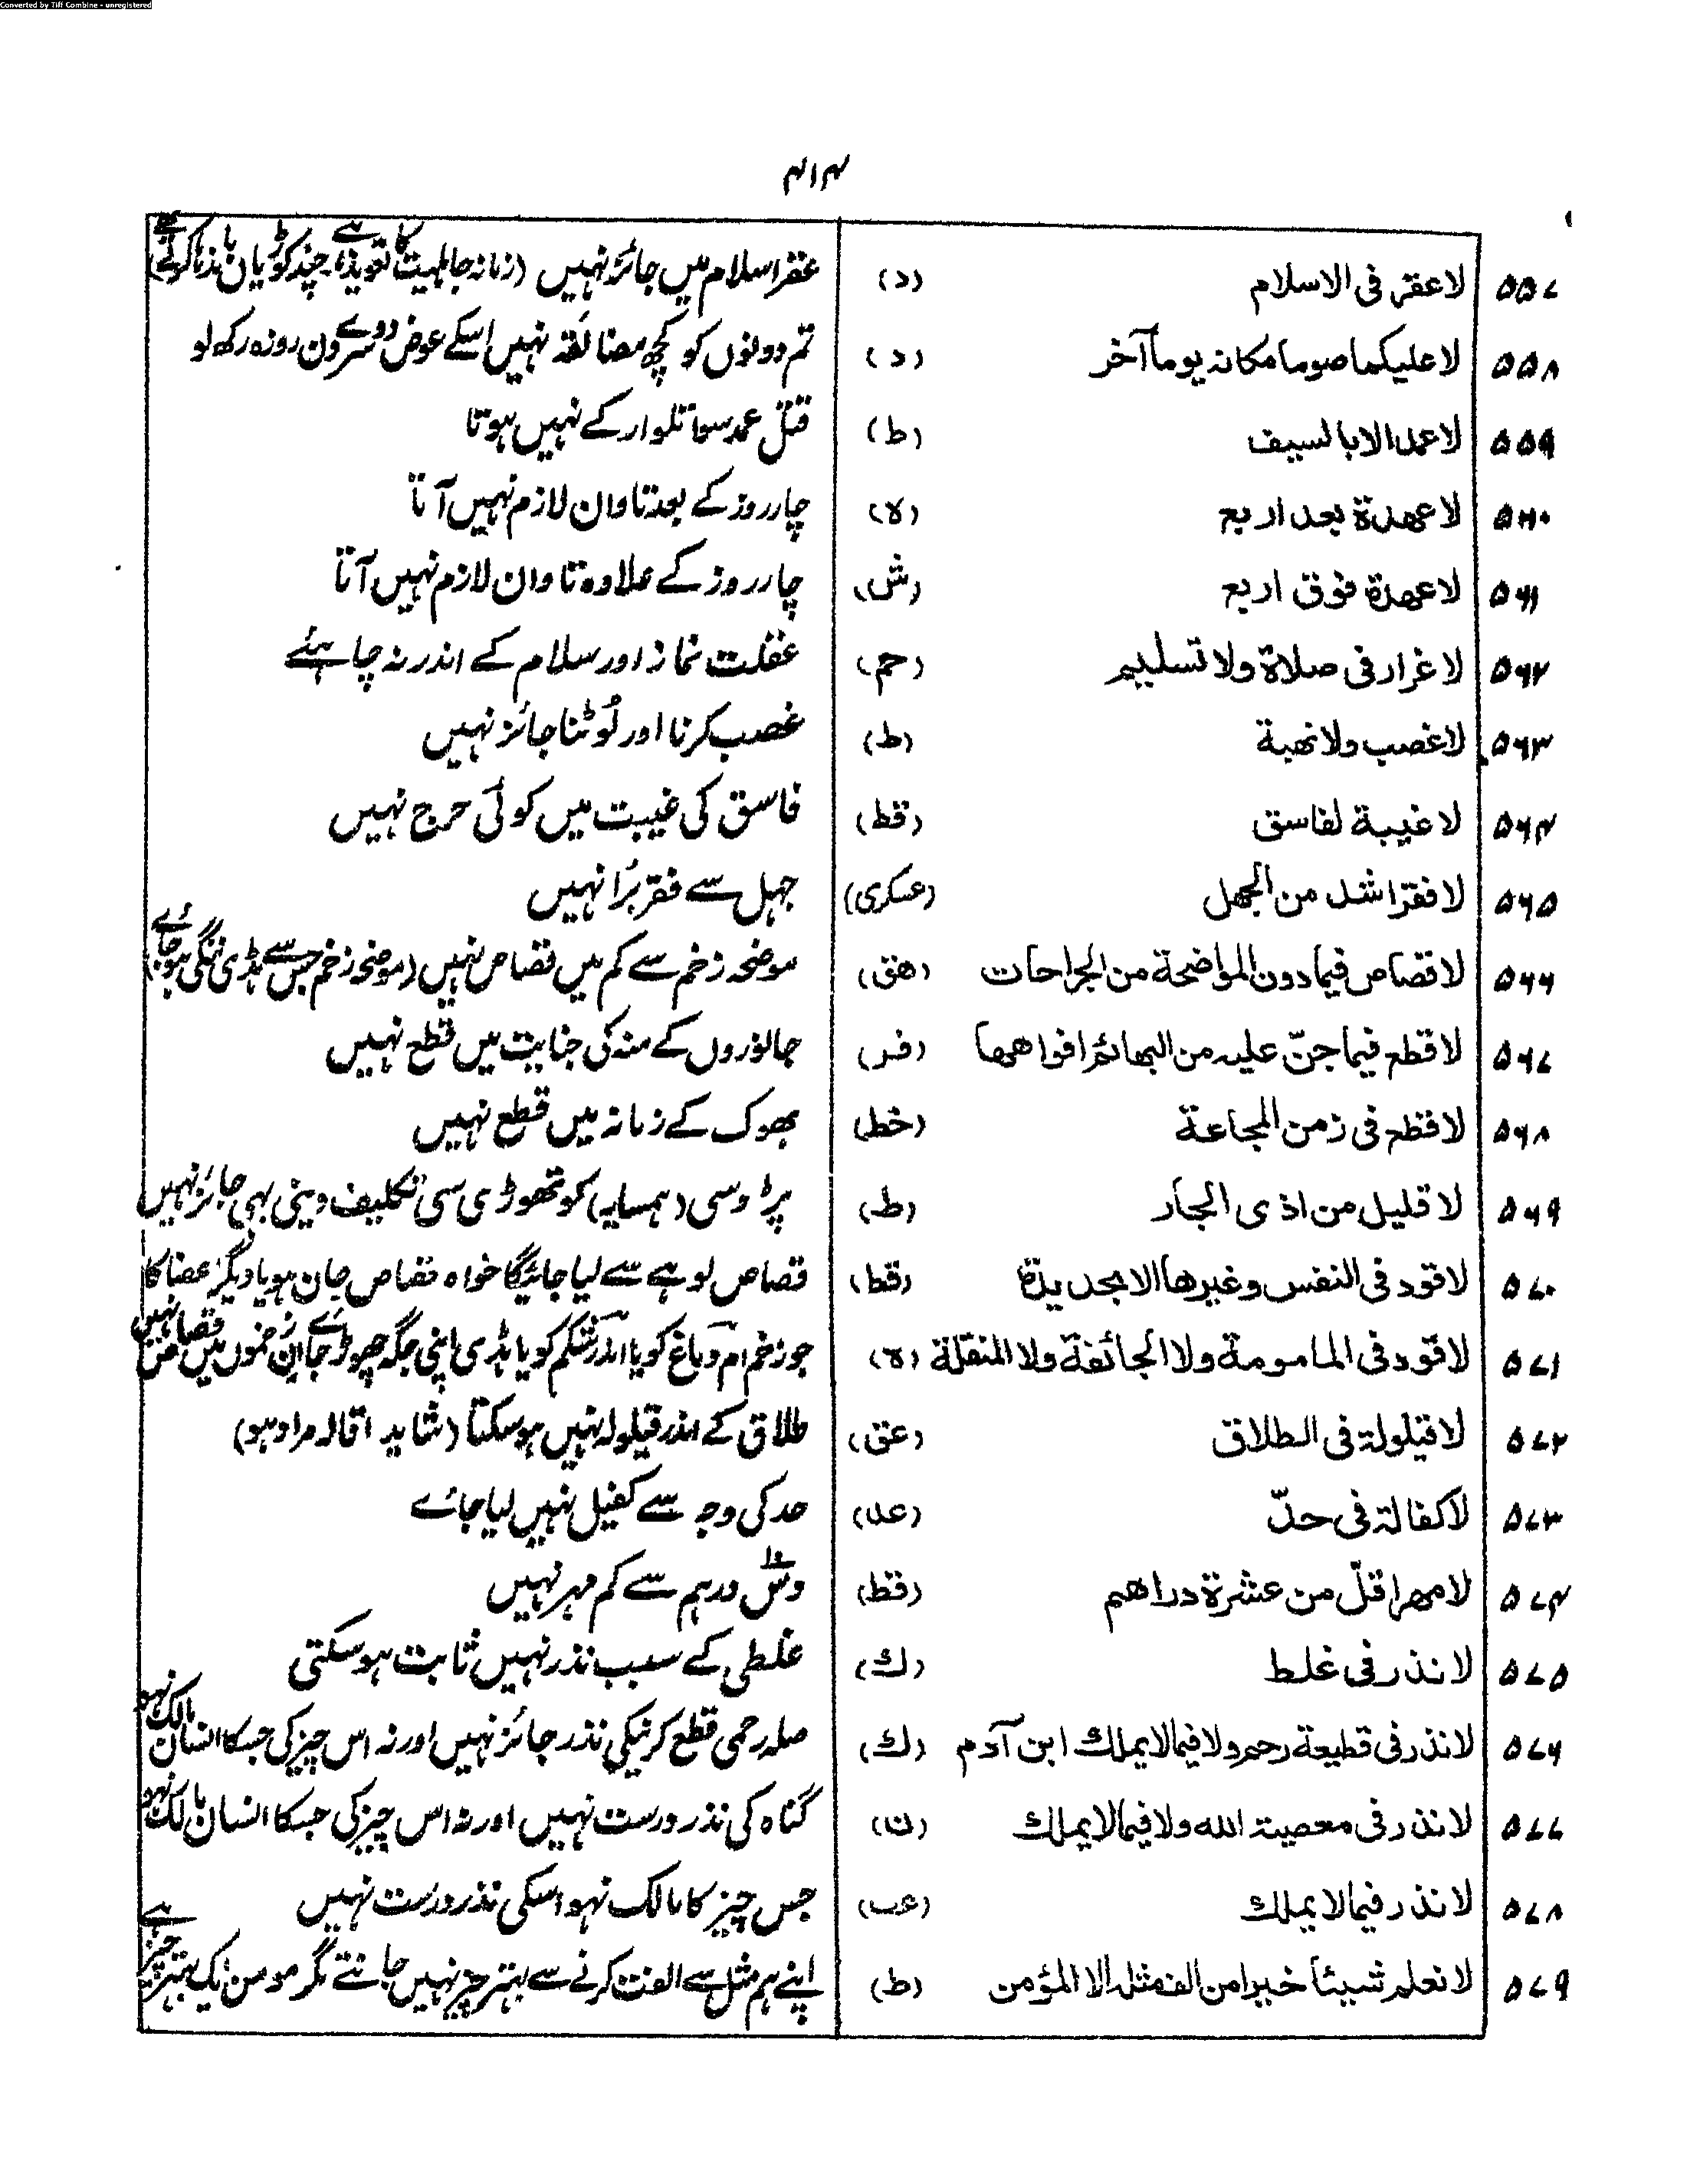 Converted by Tiff Combine - unregistered
۴۱۴
۵۵۷ لا عقر فی الاسلام (د) عقر اسلام میں جائز نہیں (زمانہ جاہلیت کا تعویذ ہے، چند کوڑیاں باندھا کرتے تھے)
۵۵۸ لا علیکما صوما مکانہ یوماً آخر (د) تم دونوں کو کچھ مضائقہ نہیں اسکے عوض دوسرے دن روزہ رکھ لو
۵۵۹ لا عمد الا بالسیف (ط) قتل عمد سوا تلوار کے نہیں ہوتا
۵۶۰ لا عھدۃ بعد اربع (ہ) چار روز کے بعد تاوان لازم نہیں آتا
۵۶۱ لا عھدۃ فوق اربع (ش) چار روز کے علاوہ تاوان لازم نہیں آتا
۵۶۲ لا غرار فی صلاۃ ولا تسلیم (حم) غفلت نماز اور سلام کے اندر نہ چاہئے
۵۶۳ لا غصب ولا نھبۃ (ط) غصب کرنا اور لُوٹنا جائز نہیں
۵۶۴ لا غیبۃ لفاسق (قط) فاسق کی غیبت میں کوئی حرج نہیں
۵۶۵ لا فقر اشد من الجھل (عسکری) جہل سے فقر بُرا نہیں
۵۶۶ لا قصاص فیما دون المواضحۃ من الجراحات (ھق) موضحہ زخم سے کم میں قصاص نہیں (موضحہ زخم جس سے ہڈی ننگی ہو جائے)
۵۶۷ لا قطع فیما جنّ علیہ من البھائم افواھھا (فر) جانوروں کے منہ کی جنایت میں قطع نہیں
۵۶۸ لا قطع فی زمن المجاعۃ (خط) بھوک کے زمانہ میں قطع نہیں
۵۶۹ لا قلیل من اذی الجار (ط) پڑوسی (ہمسایہ) کو تھوڑی سی تکلیف دینی بہی جائز نہیں
۵۷۰ لا قود فی النفس وغیرھا الا بحدیدۃ (قط) قصاص لوہے سے لیا جائیگا خواہ قصاص جان ہو یا دیگر اعضا کا
۵۷۱ لا قود فی المامومۃ ولا الجائفۃ ولا المنقلۃ (ہ) جو زخم ام دماغ کو یا اندر شکم کو یا ہڈی اپنی جگہ چھوڑ جائے ان زخموں میں قصاص نہیں
۵۷۲ لا قیلولۃ فی الطلاق (عق) طلاق کے اندر قیلولہ نہیں ہو سکتا (شاید اقالہ مراد ہو)
۵۷۳ لا کفالۃ فی حدّ (عد) حد کی وجہ سے کفیل نہیں لیا جائے
۵۷۴ لا مھر اقلّ من عشرۃ دراھم (قط) دس۱۰ درہم سے کم مہر نہیں
۵۷۵ لا نذر فی غلط (ك) غلطی کے سبب نذر نہیں ثابت ہو سکتی
۵۷۶ لا نذر فی قطیعۃ رحم ولا فیما لا یملك ابن آدم (ك) صلہ رحمی قطع کرنیکی نذر جائز نہیں اور نہ اس چیز کی جسکا انسان مالک نہو
۵۷۷ لا نذر فی معصیۃ اللہ ولا فیما لا یملك (ن) گناہ کی نذر درست نہیں اور نہ اس چیز کی جسکا انسان مالک نہو
۵۷۸ لا نذر فیما لا یملك (عب) جس چیز کا مالک نہو اسکی نذر درست نہیں
۵۷۹ لا نعلم شیئاً خیرا من الف مثلہ الا المؤمن (ط) اپنے ہم مثل سے الفت کرنے سے بہتر چیز نہیں جانتے مگر مومن ایک بہتر چیز ہے